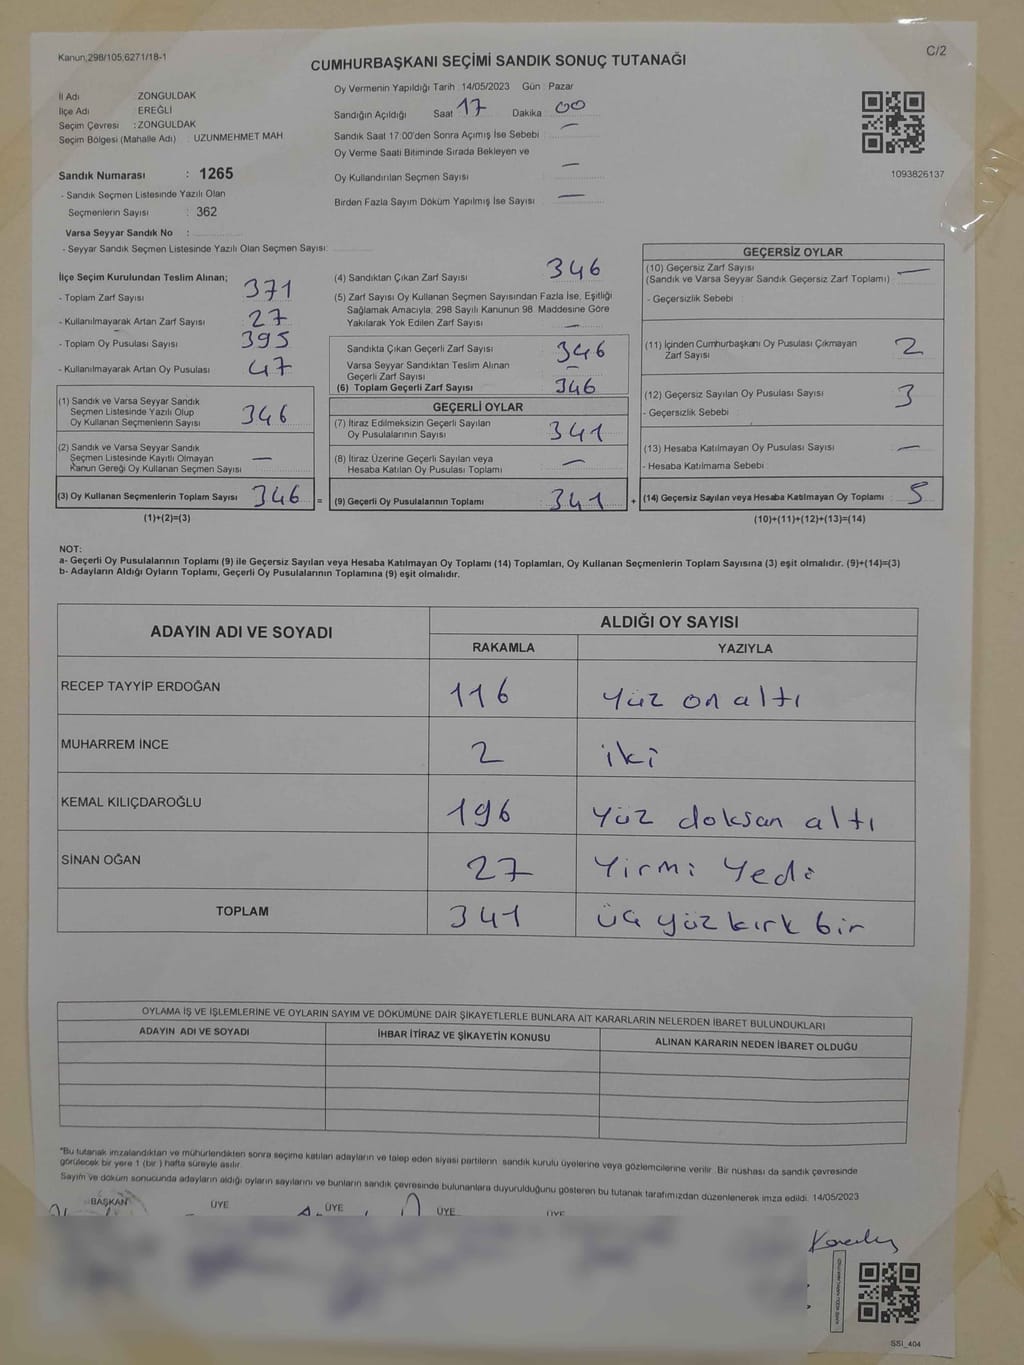 Kanun,298/105,6271/18-1
C/2
CUMHURBAŞKANI SEÇİMİ SANDIK SONUÇ TUTANAĞI
İl Adı ZONGULDAK
İlçe Adı : EREĞLİ
Seçim Çevresi : ZONGULDAK
Seçim Bölgesi (Mahalle Adı) : UZUNMEHMET MAH
Sandık Numarası : 1265
- Sandık Seçmen Listesinde Yazılı Olan
Seçmenlerin Sayısı : 362
Varsa Seyyar Sandık No :
- Seyyar Sandık Seçmen Listesinde Yazılı Olan Seçmen Sayısı:
Oy Vermenin Yapıldığı Tarih : 14/05/2023 Gün : Pazar
Sandığın Açıldığı Saat 17 Dakika 00
Sandık Saat 17:00'den Sonra Açımış İse Sebebi : —
Oy Verme Saati Bitiminde Sırada Bekleyen ve
Oy Kullandırılan Seçmen Sayısı —
Birden Fazla Sayım Döküm Yapılmış İse Sayısı —
1093826137
İlçe Seçim Kurulundan Teslim Alınan;
- Toplam Zarf Sayısı 371
- Kullanılmayarak Artan Zarf Sayısı 27
- Toplam Oy Pusulası Sayısı 395
- Kullanılmayarak Artan Oy Pusulası 47
(1) Sandık ve Varsa Seyyar Sandık
Seçmen Listesinde Yazılı Olup
Oy Kullanan Seçmenlerin Sayısı 346
(2) Sandık ve Varsa Seyyar Sandık
Seçmen Listesinde Kayıtlı Olmayan
Kanun Gereği Oy Kullanan Seçmen Sayısı —
(3) Oy Kullanan Seçmenlerin Toplam Sayısı 346 =
(1)+(2)=(3)
(4) Sandıktan Çıkan Zarf Sayısı 346
(5) Zarf Sayısı Oy Kullanan Seçmen Sayısından Fazla İse, Eşitliği
Sağlamak Amacıyla, 298 Sayılı Kanunun 98. Maddesine Göre
Yakılarak Yok Edilen Zarf Sayısı —
Sandıkta Çıkan Geçerli Zarf Sayısı 346
Varsa Seyyar Sandıktan Teslim Alınan
Geçerli Zarf Sayısı —
(6) Toplam Geçerli Zarf Sayısı 346
GEÇERLİ OYLAR
(7) İtiraz Edilmeksizin Geçerli Sayılan
Oy Pusulalarının Sayısı 341
(8) İtiraz Üzerine Geçerli Sayılan veya
Hesaba Katılan Oy Pusulası Toplamı —
(9) Geçerli Oy Pusulalarının Toplamı 341 +
GEÇERSİZ OYLAR
(10) Geçersiz Zarf Sayısı —
(Sandık ve Varsa Seyyar Sandık Geçersiz Zarf Toplamı)
- Geçersizlik Sebebi :
(11) İçinden Cumhurbaşkanı Oy Pusulası Çıkmayan
Zarf Sayısı 2
(12) Geçersiz Sayılan Oy Pusulası Sayısı 3
- Geçersizlik Sebebi :
(13) Hesaba Katılmayan Oy Pusulası Sayısı —
- Hesaba Katılmama Sebebi
(14) Geçersiz Sayılan veya Hesaba Katılmayan Oy Toplamı 5
(10)+(11)+(12)+(13)=(14)
NOT:
a- Geçerli Oy Pusulalarının Toplamı (9) ile Geçersiz Sayılan veya Hesaba Katılmayan Oy Toplamı (14) Toplamları, Oy Kullanan Seçmenlerin Toplam Sayısına (3) eşit olmalıdır. (9)+(14)=(3)
b- Adayların Aldığı Oyların Toplamı, Geçerli Oy Pusulalarının Toplamına (9) eşit olmalıdır.
ADAYIN ADI VE SOYADI ALDIĞI OY SAYISI
RAKAMLA YAZIYLA
RECEP TAYYİP ERDOĞAN 116 yüz on altı
MUHARREM İNCE 2 iki
KEMAL KILIÇDAROĞLU 196 Yüz doksan altı
SİNAN OĞAN 27 Yirmi Yedi
TOPLAM 341 üç yüz kırk bir
OYLAMA İŞ VE İŞLEMLERİNE VE OYLARIN SAYIM VE DÖKÜMÜNE DAİR ŞİKAYETLERLE BUNLARA AİT KARARLARIN NELERDEN İBARET BULUNDUKLARI
ADAYIN ADI VE SOYADI İHBAR İTİRAZ VE ŞİKAYETİN KONUSU ALINAN KARARIN NEDEN İBARET OLDUĞU
*Bu tutanak imzalandıktan ve mühürlendikten sonra seçime katılan adayların ve talep eden siyasi partilerin sandık kurulu üyelerine veya gözlemcilerine verilir. Bir nüshası da sandık çevresinde
görülecek bir yere 1 (bir) hafta süreyle asılır.
Sayım ve döküm sonucunda adayların aldığı oyların sayılarını ve bunların sandık çevresinde bulunanlara duyurulduğunu gösteren bu tutanak tarafımızdan düzenlenerek imza edildi. 14/05/2023
BAŞKAN ÜYE ÜYE ÜYE ÜYE
SSI_404